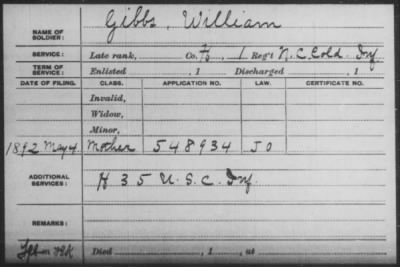 NAME OF SOLDIER: Gibbs, William
SERVICE: Late rank, Co. H, 1 Reg't N.C. Cold Inf
TERM OF SERVICE: Enlisted , 1 Discharged , 1
DATE OF FILING. CLASS. APPLICATION NO. LAW. CERTIFICATE NO.
Invalid,
Widow,
Minor,
1892 May 4 Mother 548934 JO
ADDITIONAL SERVICES: H 35 U.S.C. Inf.
REMARKS:
Died , 1 , at